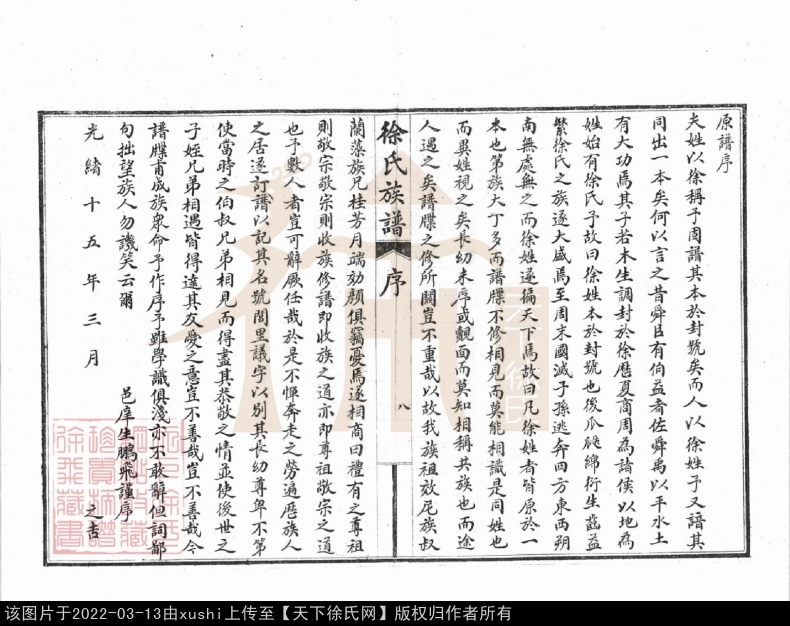 原譜序
夫姓以徐稱予固譜其本於封號矣而人以徐姓予又譜其
同出一本矣何以言之昔舜臣有伯益者佐舜禹以平水土
有大功焉其子若木生調封於徐歷夏商周為諸侯以地為
姓始有徐氏予故曰徐姓本於封號也後瓜瓞綿衍生齒益
繁徐氏之族遂大盛焉至周末國滅子孫逃奔四方東西朔
南無處無之而徐姓遂徧天下焉故曰凡徐姓者皆原於一
本也第族大丁多而譜牒不修相見而莫能相識是同姓也
而異姓視之矣長幼未序或覿面而莫知相稱共族也而途
人遇之矣譜牒之修所關豈不重哉以故我族祖效尼族叔
徐氏族譜 序 八
蘭藻族兄桂芳月端効顏俱竊憂焉遂相商曰禮有之尊祖
則敬宗敬宗則收族修譜即收族之道亦即尊祖敬宗之道
也予數人者豈可辭厥任哉於是不憚奔走之勞遍歷族人
之居逐訂譜以記其名號閭里議字以別其長幼尊卑不第
使當時之伯叔兄弟相見而得盡其恭敬之情並使後世之
子姪兄弟相遇皆得達其友愛之意豈不善哉豈不善哉今
譜牒甫成族衆命予作序予雖學識俱淺亦不敢辭但詞鄙
句拙望族人勿譏笑云爾
邑庠生鵬飛謹序
光緒十五年三月
之吉
该图片于2022-03-13由xushi上传至【天下徐氏网】版权归作者所有